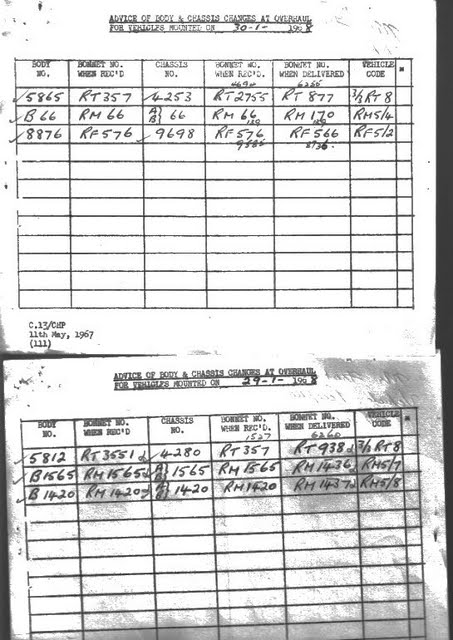 ADVICE OF BODY & CHASSIS CHANGES AT OVERHAUL
FOR VEHICLES MOUNTED ON 30-1- 1968
BODY NO. BONNET NO. WHEN REC'D CHASSIS NO. BONNET NO. WHEN REC'D. BONNET NO. WHEN DELIVERED VEHICLE CODE
4694 6255
5865 RT357 4253 RT2755 RT 877 3/3 RT8
B 66 RM 66 A} B} 66 RM 66 RM 170 RM5/4
8876 RF576 9698 RF 576 RF 566 RF5/2
8736
C.13/CHP
11th May, 1967
(111)
ADVICE OF BODY & CHASSIS CHANGES AT OVERHAUL
FOR VEHICLES MOUNTED ON 29-1- 1968
BODY NO. BONNET NO. WHEN REC'D CHASSIS NO. BONNET NO. WHEN REC'D. BONNET NO. WHEN DELIVERED VEHICLE CODE
1527 6260
5812 RT3551 4280 RT357 RT938 3/3 RT8
B1565 RM1565 A} B} 1565 RM1565 RM1436 RM5/7
B1420 RM1420 A} B} 1420 RM1420 RM1437 RM5/8